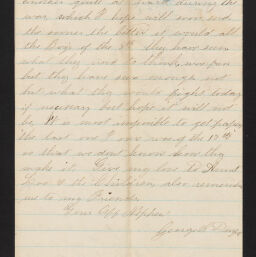 during the
war which I hope will soon end
the sooner the better it would all
the boys of the 8th they have seen
what they
but they have seen enough not
but what they would fight today
if necessary but hope it will not
be It is most impossible to get paper
the last one I saw was of the 17th
so that we don't know how they
make it. Give my love to Aunt
& the Children also remember
me to my Friends
Your Aff Nephew
George